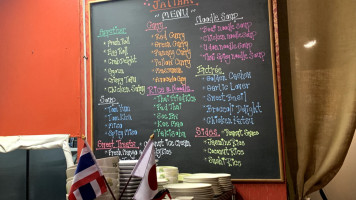 JAITHAI
MENU
Appetizer
Fresh Roll
Egg Roll
Crab Delight
Gyoza
Crispy Tofu
Chicken Satay
Soup
Tom Yum
Tom Kha
Miso
Spicy Miso
Sweet Treats
Curry
Red Curry
Green Curry
Panang Curry
Yellow Curry
Massaman
Avocado Curry
Rice & Noodle
Thai Fried Rice
Pad Thai
Pad See
Yakisoba
Coconut Ice Cream
Noodle Soup
Beef noodle Soup
Chicken noodle Soup
Udon noodle Soup
Thai Spicy noodle Soup
Entrée
Golden Cashew
Garlic Lover
Sweet Basil
Broccoli Delight
Chicken Teriyaki
Sides
Peanut Sauce
Jasmine Rice
Coconut Rice
Sushi Rice